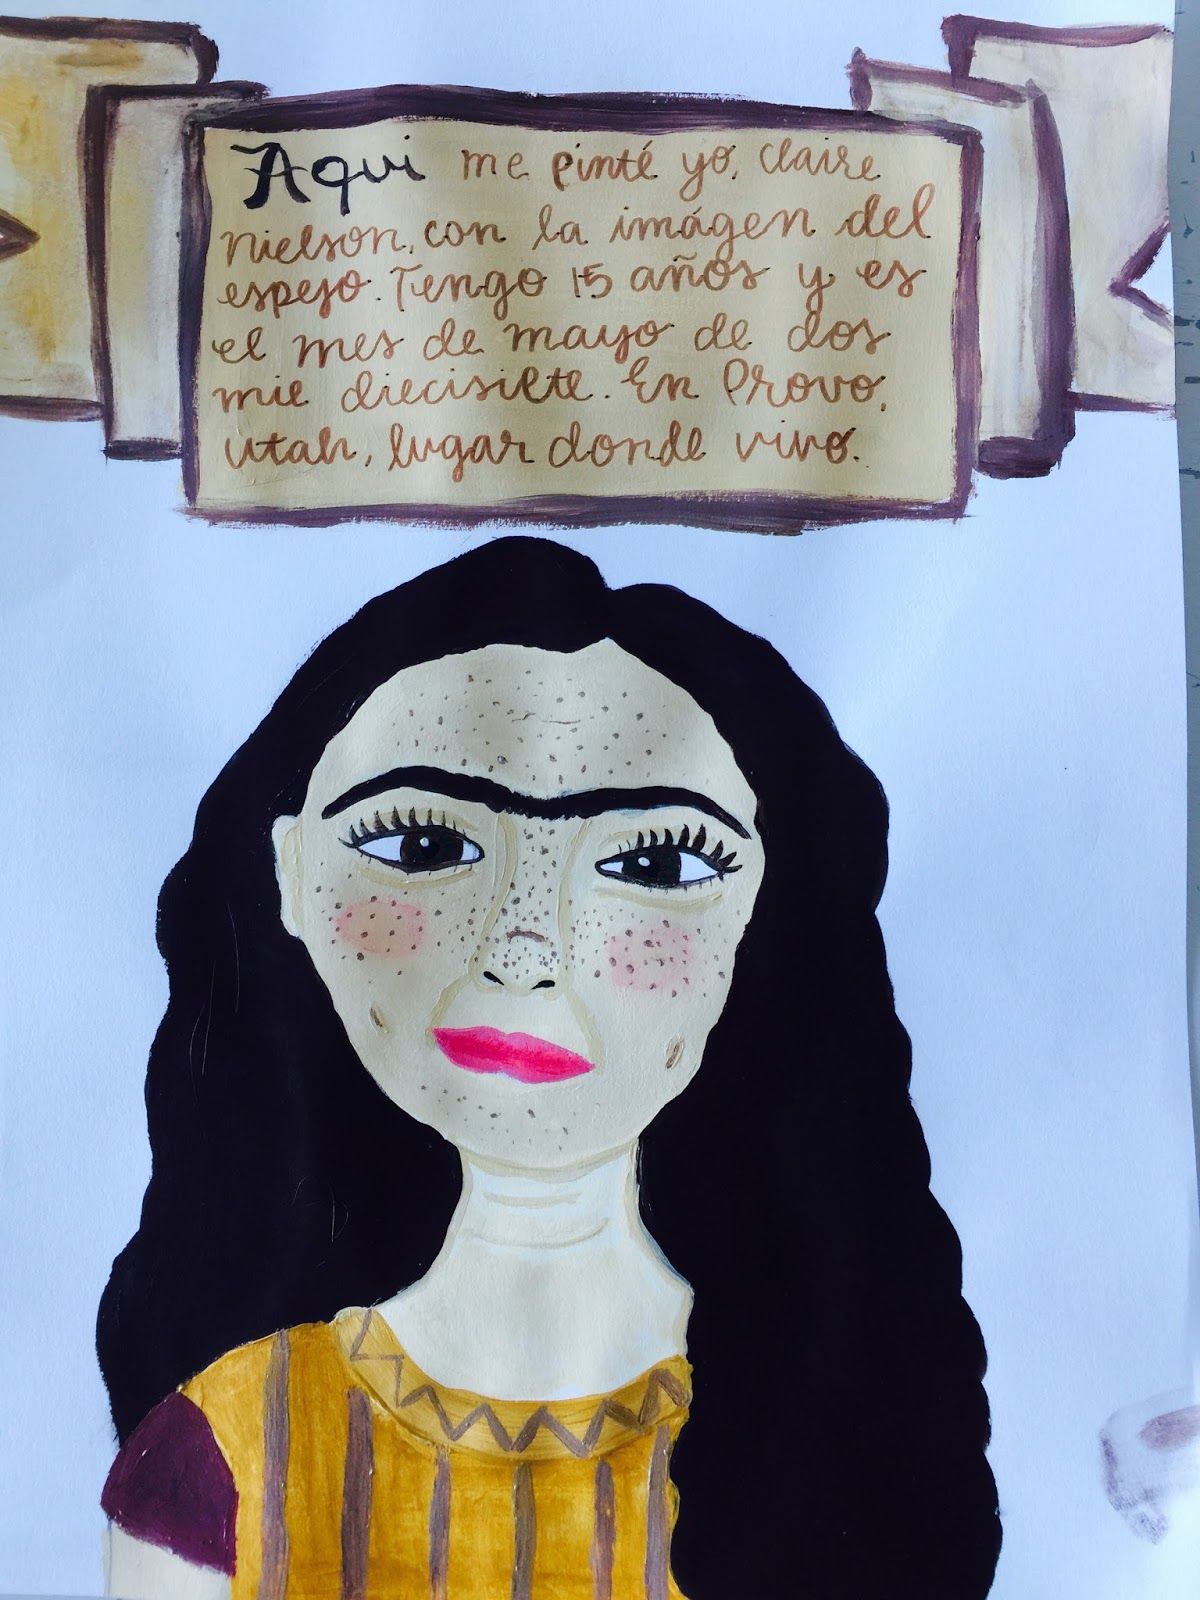 Aqui me pinté yo, Claire
Nielson, con la imágen del
espejo. Tengo 15 años y es
el mes de mayo de dos
mie diecisiete. En Provo,
Utah, lugar donde vivo.